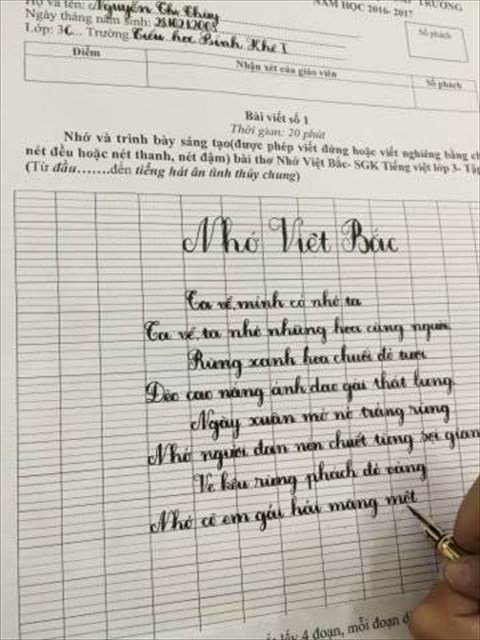 Họ và tên: Nguyễn Thị Thùy
TRƯỜNG
NĂM HỌC 2016- 2017
Ngày tháng năm sinh: 23/02/2008
Lớp: 3C Trường Tiểu học Bình Khê I
Số phách
Điểm
Nhận xét của giáo viên
Số phách
Bài viết số 1
Thời gian: 20 phút
Nhớ và trình bày sáng tạo(được phép viết đứng hoặc viết nghiêng bằng
nét đều hoặc nét thanh, nét đậm) bài thơ Nhớ Việt Bắc- SGK Tiếng việt lớp 3-
(Từ đầu…….đến tiếng hát ân tình thủy chung)
Nhớ Việt Bắc
Ta về, mình có nhớ ta
Ta về, ta nhớ những hoa cùng người
Rừng xanh hoa chuối đỏ tươi
Đèo cao nắng ánh dao gài thắt lưng.
Ngày xuân mơ nở trắng rừng
Nhớ người đan nón chuốt từng sợi gian
Ve kêu rừng phách đổ vàng
Nhớ cô em gái hái măng một
lấy 4 đoạn, mỗi đoạn